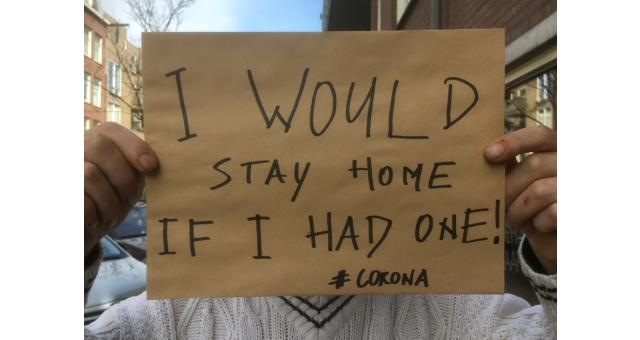 I WOULD
STAY HOME
IF I HAD ONE!
# CORONA